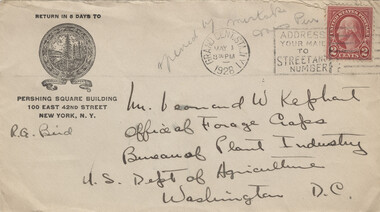 RETURN IN 5 DAYS TO
PERSHING SQUARE BUILDING
100 EAST 42ND STREET
NEW YORK, N. Y.
opened by
GRAND CENTRAL STA.
MAY 1
8 PM
1928
ADDRESS
YOUR MAIL
TO
STREET AND
NUMBER
2 CENTS 2
Mr. Leonard W Kephart
Office of Forage Crops
Bureau of Plant Industry
U. S. Dept of Agriculture
Washington D. C.